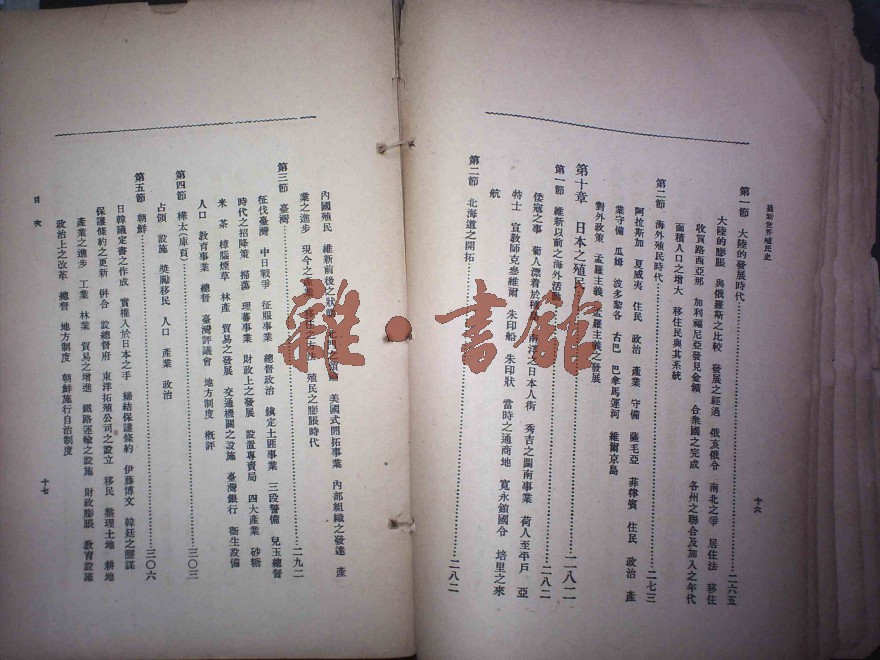 最新世界殖民史
十六
第一節 大陸的發展時代……二六五
大陸的膨脹 與俄羅斯之比較 發展之經過 俄亥俄令 南北之爭 居住法 移住
收買路西亞那 加利福尼亞發見金鑛 合衆國之完成 各州之聯合及加入之年代
面積人口之增大 移住民與其系統
第二節 海外殖民時代……二七三
阿拉斯加 夏威夷 住民 政治 產業 守備 薩毛亞 菲律賓 住民 政治 產
業守備 瓜姆 波多黎各 古巴 巴拿馬運河 維爾京島
對外政策 孟羅主義 孟羅主義之發展
第十章 日本之殖民……二八二
第一節 維新以前之海外活動……二八二
倭寇之事 葡人漂着於種 南洋之日本人街 秀吉之閩南事業 荷人至平戶 亞
特士 宣教師克參維爾 朱印船 朱印狀 當時之通商地 寬永鎖國令 培里之來
航
第二節 北海道之開拓……二八二
內國殖民 維新前後之狀 美國式開拓事業 內部組織之發達 產
業之進步 現今之產業 移住之方法 殖民之膨脹時代
第三節 臺灣……二九二
征伐臺灣 中日戰爭 征服事業 總督政治 鎮定土匪事業 三段警備 兒玉總督
時代之招降策 掃蕩 理蕃事業 財政上之發展 設置專賣局 四大產業 砂糖
米 茶 樟腦煙草 林產 貿易之發展 交通機關之設施 臺灣銀行 衞生設備
人口 教育事業 總督 臺灣評議會 地方制度 概評
第四節 樺太(庫頁)……三〇三
占領 設施 獎勵移民 人口 產業 政治
第五節 朝鮮……三〇六
日韓議定書之作成 實權入於日本之手 締結保護條約 伊藤博文 韓廷之陰謀
保護條約之更新 併合 設總督府 東洋拓殖公司之設立 移民 整理土地 耕地
產業之進步 工業 林業 貿易之增進 鐵路運輸之設施 財政膨脹 教育設施
政治上之改革 總督 地方制度 朝鮮施行自治制度
目次
十七
雜·書館